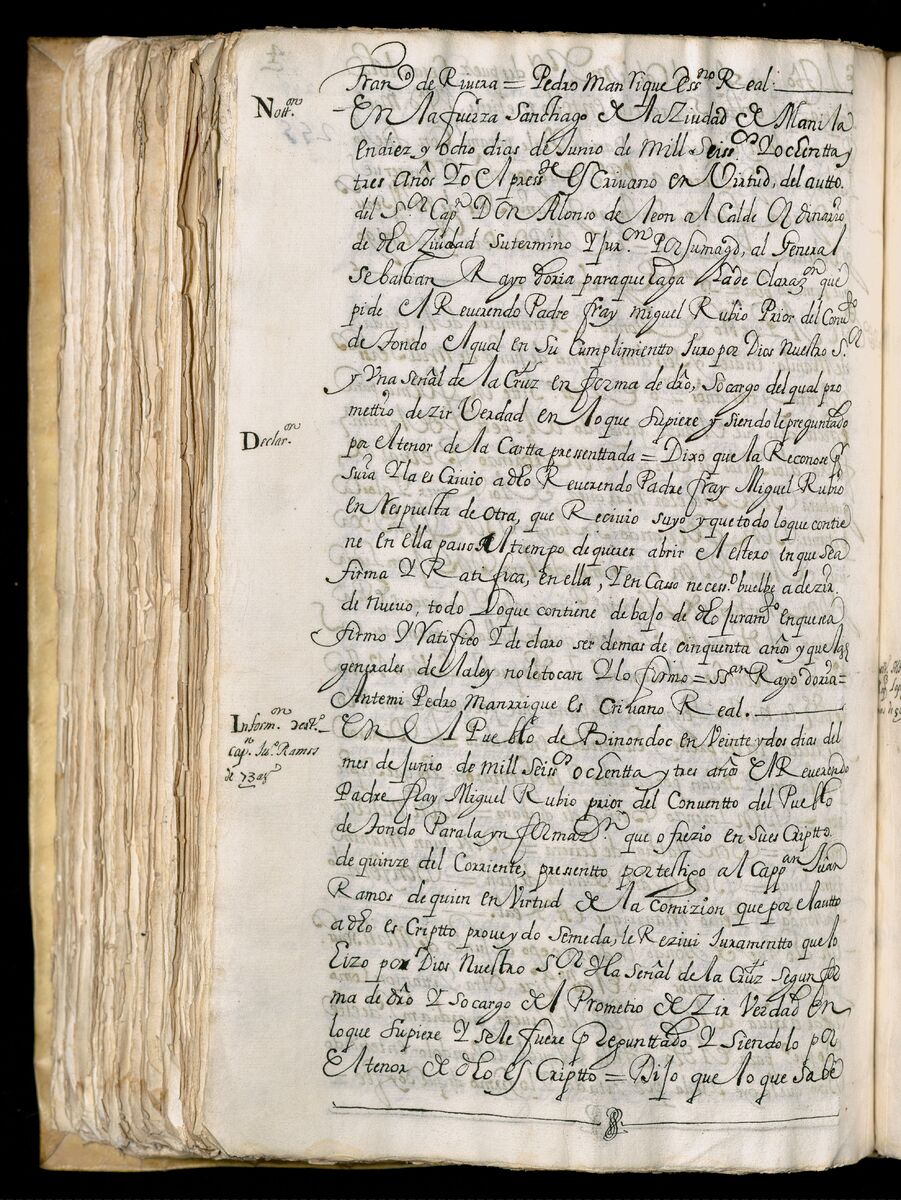 Fran.co de Rivera = Pedro Manrique ess.no Real:
Nott.on
En la fuerza Santhiago de la Ziudad de Manila
en diez y ocho dias de Junio de mill seiss.os y ochentta y
tres años Yo el press.te escrivano en Virtud, del autto
del S.or Cap.n Don Alonso de leon alcalde ordinario
de dha Ziudad su termino Y jur.on por su mag.d, al General
sebastian Rayo doria para que haga la declaraz.on que
pide el Reverendo Padre fray Miguel Rubio Prior del Conv.to
de tondo el qual en su Cumplimientto Juro por Dios Nuestro S.or
y Una señal de la Cruz en forma de dro, so cargo del qual pro
mettio dezir Verdad en lo que supiere y siendole preguntado
Declar.on
por el tenor de la Cartta presenttada = Dixo que la Reconose p.r
suia Y la escrivio a dho Reverendo Padre fray Miguel Rubio
en Respuesta de otra, que Recivio suyo y que todo lo que contie
ne en ella passo al tiempo de querer abrir el estero en que sea
firma Y Ratifica, en ella, Y en Casso neces.o buelbe a dezir
de nuevo, todo lo que contiene debajo de dho Juram.to en que sea
firmo Y Ratifico Y declaro ser de mas de cinquenta años y que las
generales de la ley no le tocan Y lo firmo = ss.an Rayo doria =
Antemi Pedro Manrrique escrivano Real.
Inform.on test.o
cap.n Ju.o Ramos
de 73 a.s
En el Pueblo de Binondoc en Veinte y dos dias del
mes de Junio de mill seiss.os ochentta y tres años el Reverendo
Padre fray Miguel Rubio prior del Conventto del Pueblo
de tondo Para la ynformaz.on que ofrezio en su escriptto
de quinze del Corriente, presentto por testigo al Capp.an Juan
Ramos de quien en Virtud de la Comizion que por el autto
a dho escriptto proveydo se me da, le Rezivi Juramentto que lo
hizo por Dios Nuestro S.or Y la señal de la Cruz segun for
ma de dro Y so cargo del Prometio dezir Verdad en
lo que supiere Y se le fuere preguntado Y siendolo por
el tenor de dho escriptto = Dijo que lo que sabe